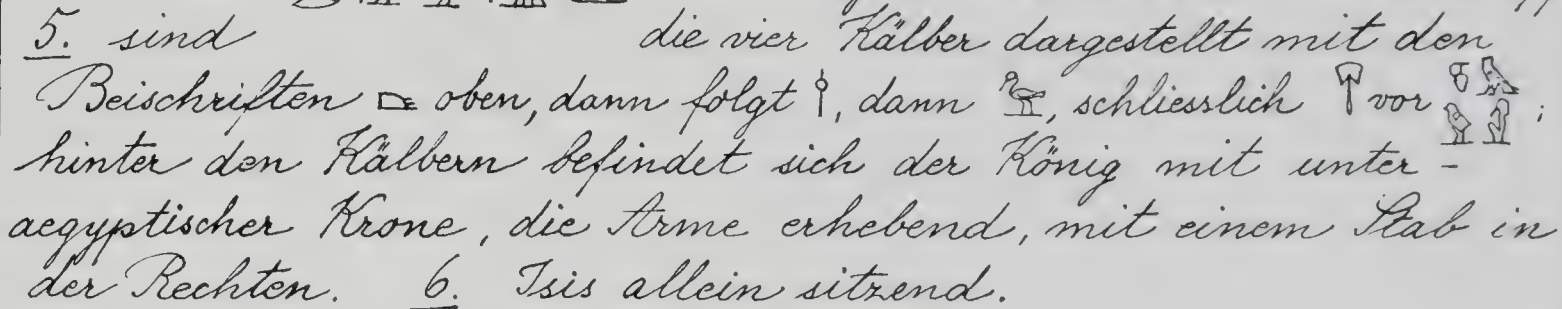 5. sind die vier Kälber dargestellt mit den
Beischriften oben, dann folgt , dann , schliesslich vor ;
hinter den Kälbern befindet sich der König mit unter-
aegyptischer Krone, die Arme erhebend, mit einem Stab in
der Rechten. 6. Isis allein sitzend.